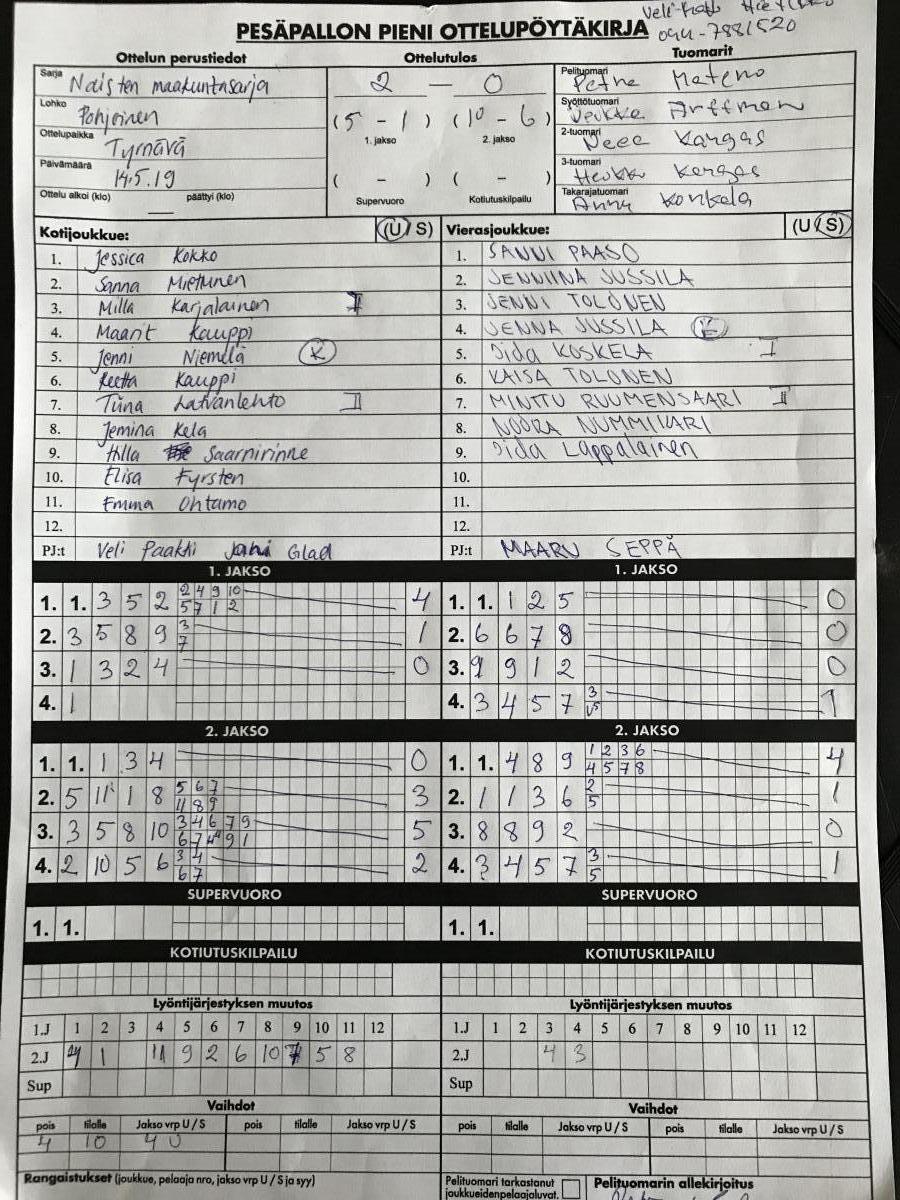 Veli-Matti
PESÄPALLON PIENI OTTELUPÖYTÄKIRJA 044-7881520
Ottelun perustiedot Ottelutulos Tuomarit
Sarja Naisten maakuntasarja 2 — 0 Pelituomari Petra Materno
Lohko Pohjoinen (5 - 1) (10 - 6) Syöttötuomari Arffman
1. jakso 2. jakso
Ottelupaikka Tyrnävä 2-tuomari Neea Kangas
Päivämäärä 14.5.19 ( - ) ( - ) 3-tuomari Heikki Kangas
Ottelu alkoi (klo) — päättyi (klo) Supervuoro Kotiutuskilpailu Takarajatuomari Anni Konkela
Kotijoukkue: (U/S) Vierasjoukkue: (U/S)
1. Jessica Kokko 1. SANNI PAASO
2. Sanna Miettunen 2. JENNIINA JUSSILA
3. Milla Karjalainen I 3. JENNI TOLONEN
4. Maarit Kauppi 4. JENNA JUSSILA K
5. Jenni Niemelä K 5. Iida KOSKELA I
6. Reetta Kauppi 6. KAISA TOLONEN
7. Tiina Latvanlehto II 7. MINTTU RUUMENSAARI II
8. Jemina Kela 8. NOORA NUMMIKARI
9. Hilla Saarnirinne 9. Iida Lappalainen
10. Elisa Fyrsten 10.
11. Emma Ohtamo 11.
12. 12.
PJ:t Veli Paakki Jani Glad PJ:t MAARU SEPPÄ
1. JAKSO 1. JAKSO
1. 1. 3 5 2 2 4 9 10 4 1. 1. 1 2 5 0
5 7 1 2
2. 3 5 8 9 3 1 2. 6 6 7 8 0
7
3. 1 3 2 4 0 3. 9 9 1 2 0
4. 1 4. 3 4 5 7 3 1
v5
2. JAKSO 2. JAKSO
1. 1. 1 3 4 0 1. 1. 4 8 9 1 2 3 6 4
4 5 7 8
2. 5 11 1 8 5 6 7 3 2. 1 1 3 6 2 1
11 8 9 5
3. 3 5 8 10 3 4 6 7 9 5 3. 8 8 9 2 0
6 7 11 9 1
4. 2 10 5 6 3 4 2 4. 3 4 5 7 3 1
6 7 5
SUPERVUORO SUPERVUORO
1. 1. 1. 1.
KOTIUTUSKILPAILU KOTIUTUSKILPAILU
Lyöntijärjestyksen muutos Lyöntijärjestyksen muutos
1.J 1 2 3 4 5 6 7 8 9 10 11 12 1.J 1 2 3 4 5 6 7 8 9 10 11 12
2.J 4 1 11 9 2 6 10 7 5 8 2.J 4 3
Sup Sup
Vaihdot Vaihdot
pois tilalle Jakso vrp U / S pois tilalle Jakso vrp U / S pois tilalle Jakso vrp U / S pois tilalle Jakso vrp U / S
4 10 4 U
Rangaistukset (joukkue, pelaaja nro, jakso vrp U / S ja syy) Pelituomari tarkastanut Pelituomarin allekirjoitus
joukkueidenpelaajaluvat.